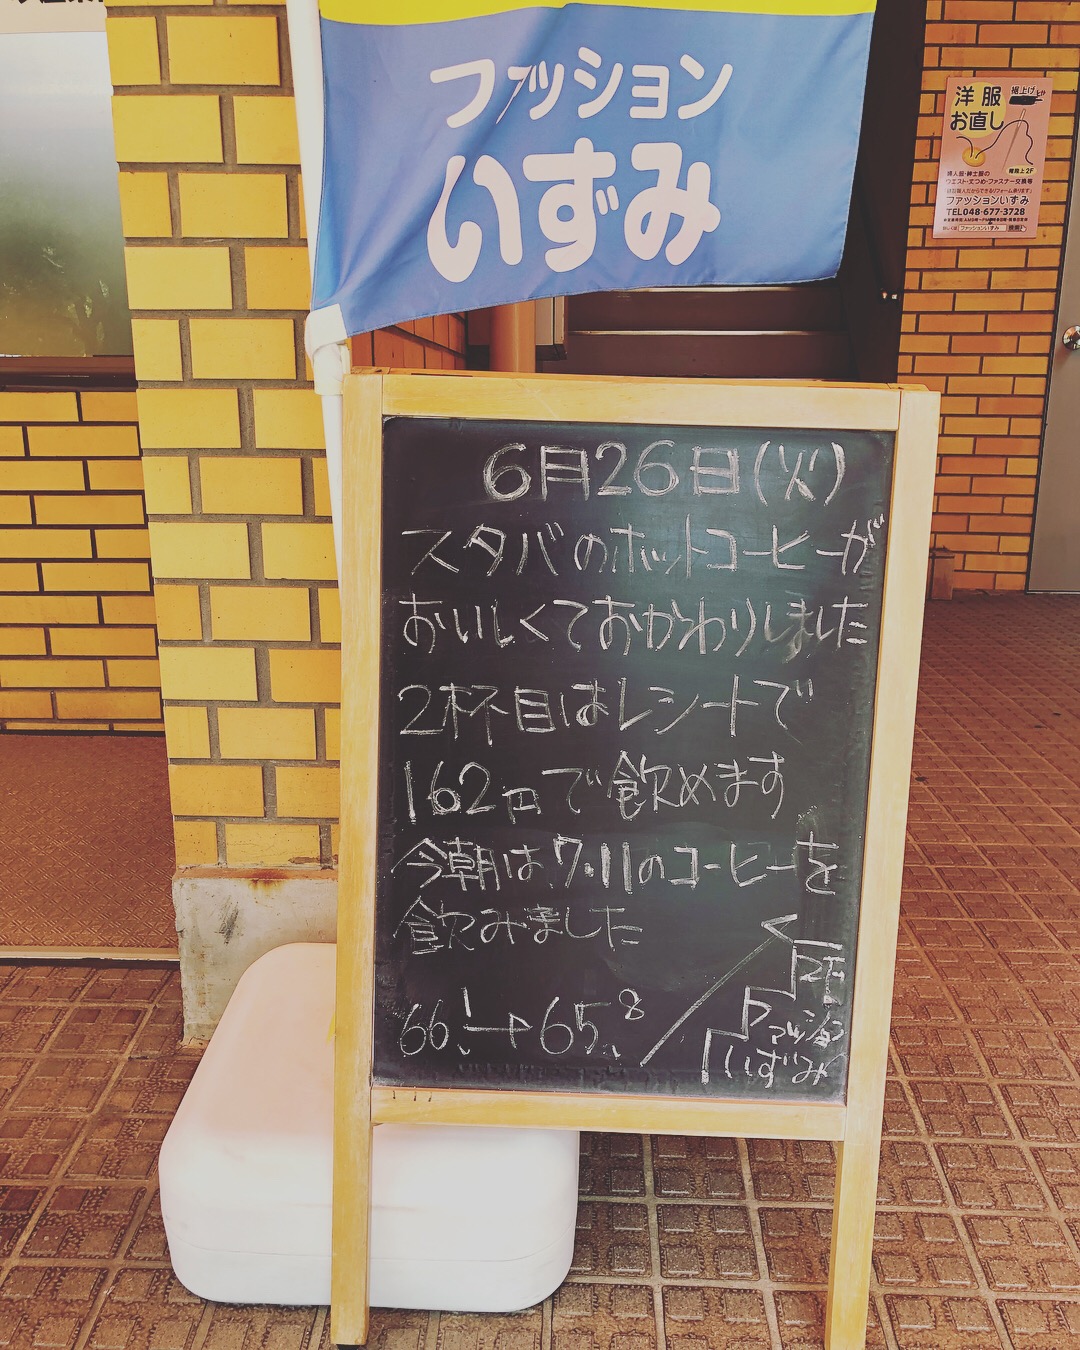 ファッション
いずみ
洋服
お直し
裾上げ
階段上2F
婦人服・紳士服の
ウエスト・丈つめ・ファスナー交換等
ファッションいずみ
TEL048-677-3728
ファッションいずみ
6月26日(火)
スタバのホットコーヒーが
おいしくておかわりしました
2杯目はレシートで
162円で飲めます
今朝は7・11のコーヒーを
飲みました
66.1→65.8
2F
ファッション
いずみ